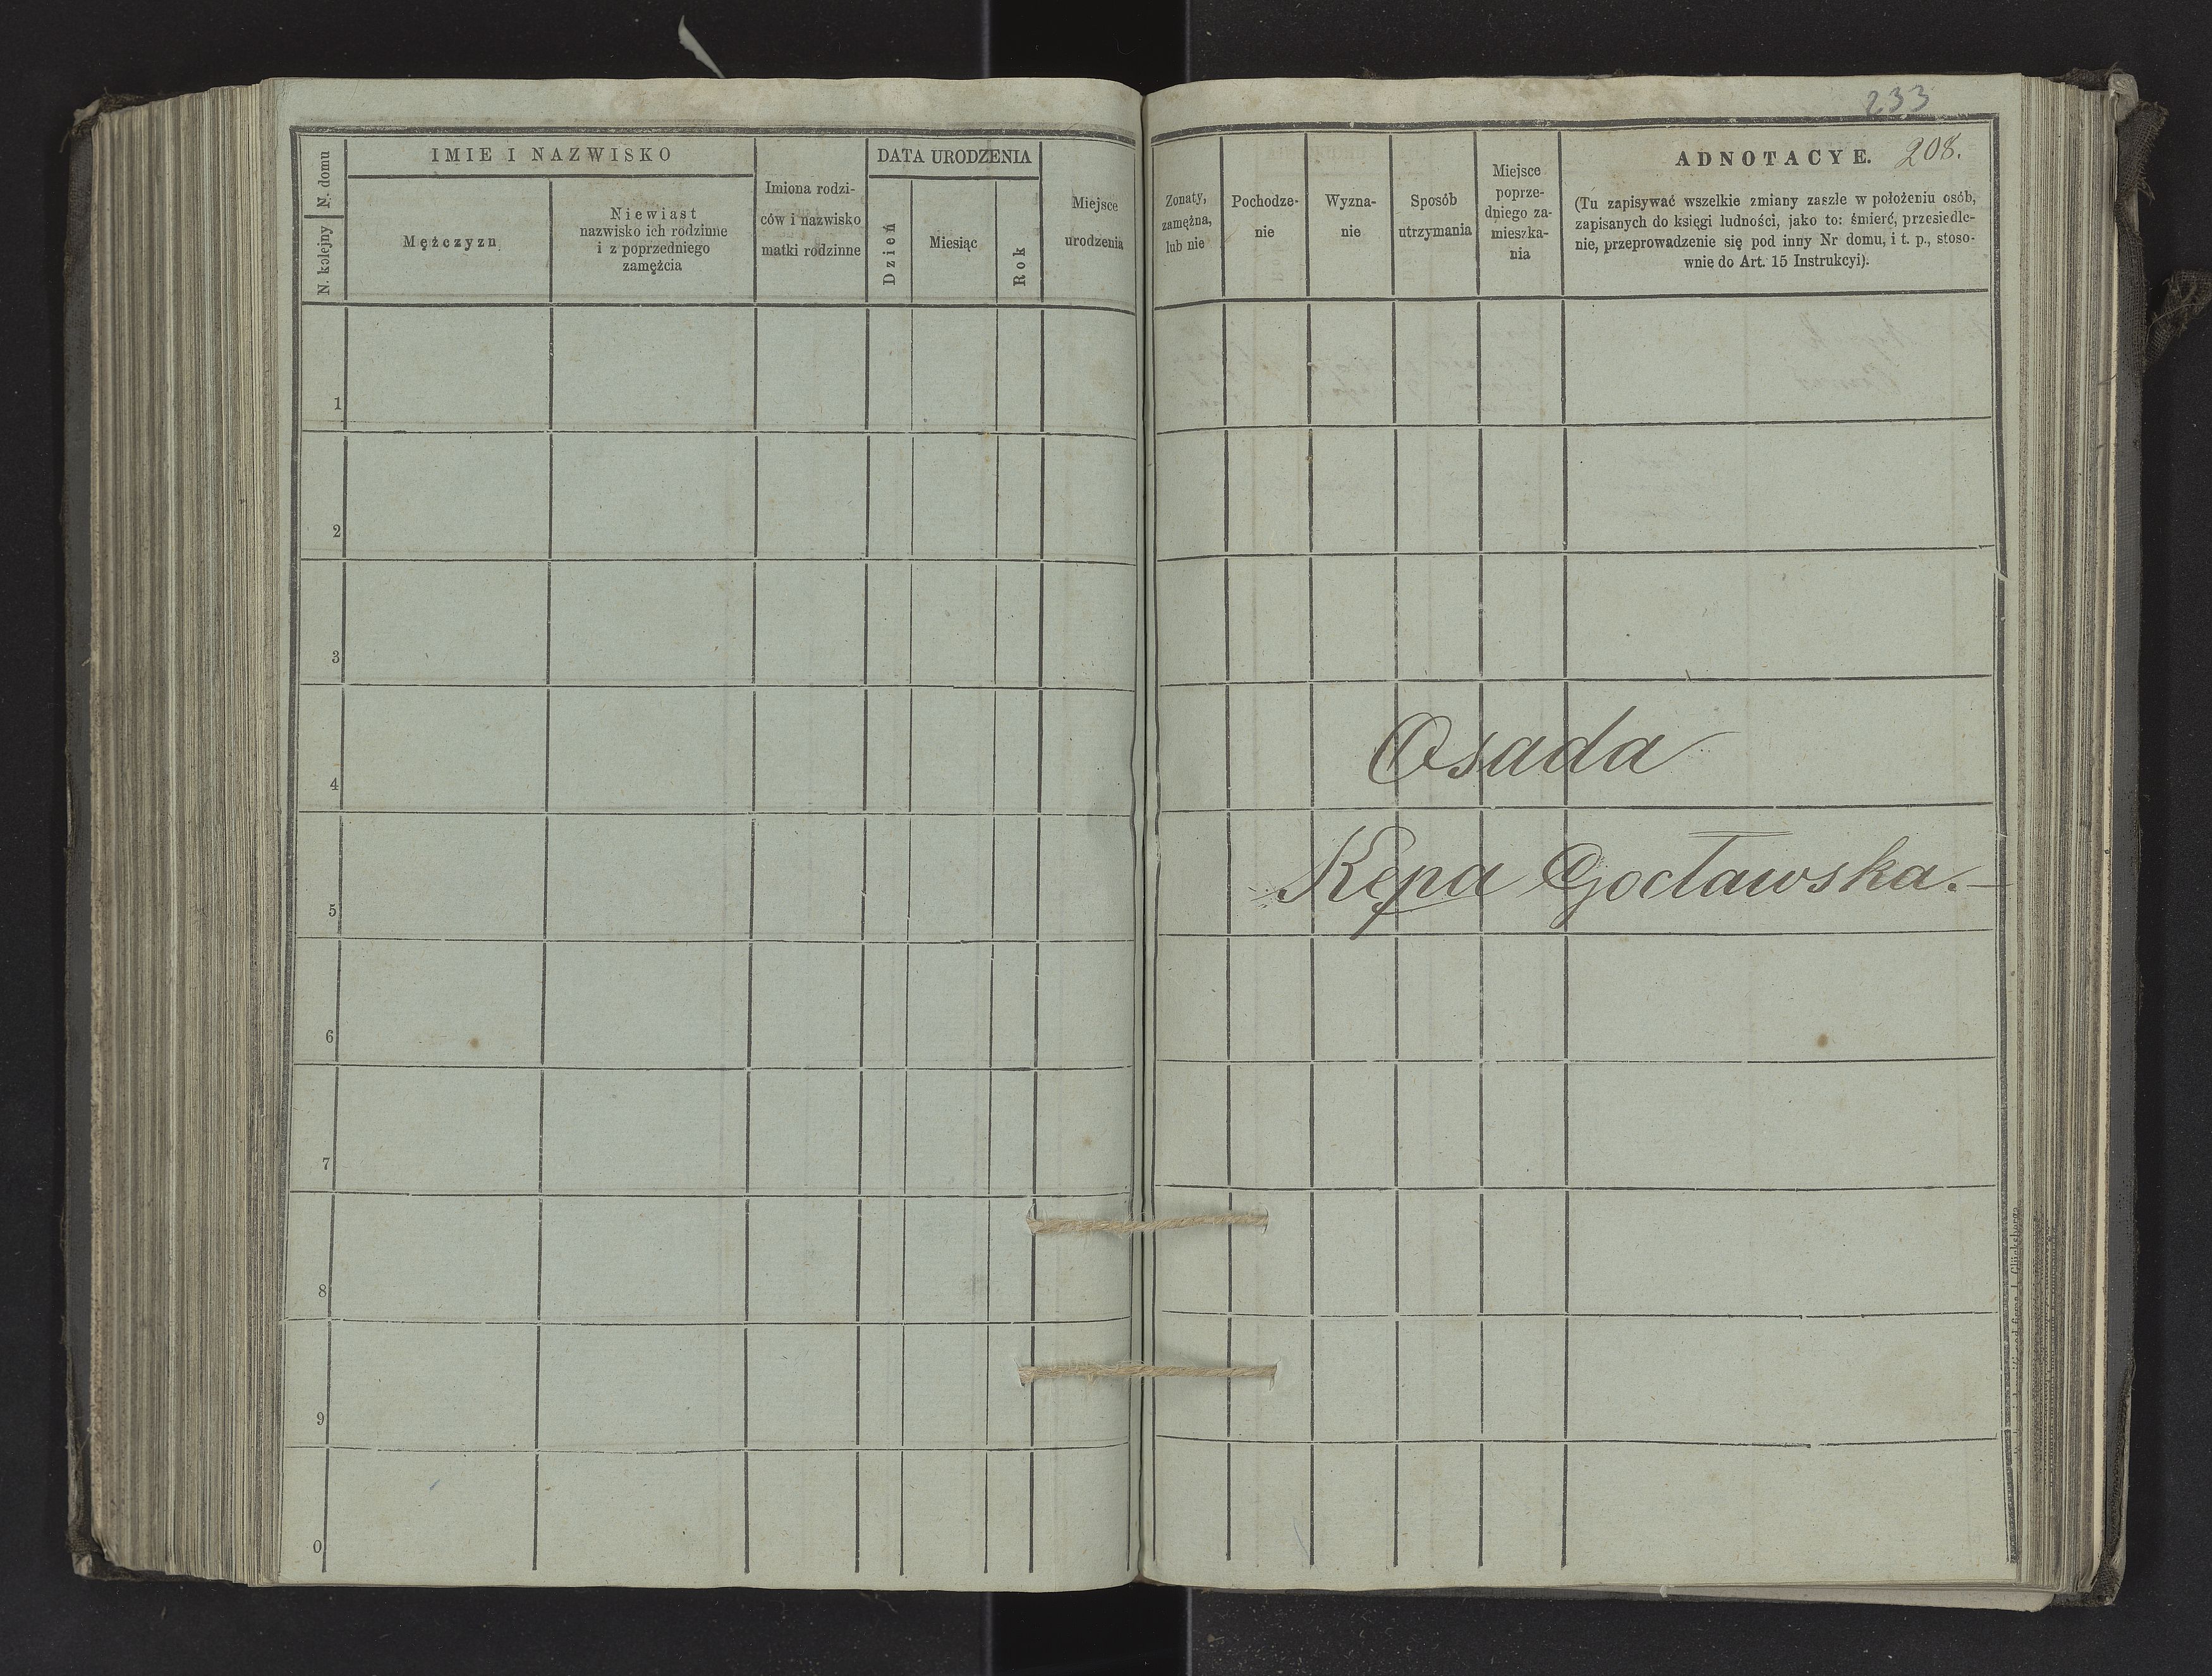 N. domu
N. kolejny
IMIE I NAZWISKO
Mężczyzn
Niewiast
nazwisko ich rodzinne
i z poprzedniego
zamężcia
Imiona rodzi-
ców i nazwisko
matki rodzinne
DATA URODZENIA
Dzień
Miesiąc
Rok
Miejsce
urodzenia
1
2
3
4
5
6
7
8
9
0
233
Zonaty,
zamężna,
lub nie
Pochodze-
nie
Wyzna-
nie
Sposób
utrzymania
Miejsce
poprze-
dniego za-
mieszka-
nia
ADNOTACYE. 208.
(Tu zapisywać wszelkie zmiany zaszłe w położeniu osób,
zapisanych do księgi ludności, jako to: śmierć, przesiedle-
nie, przeprowadzenie się pod inny Nr domu, i t. p., stoso-
wnie do Art. 15 Instrukcyi).
Osada
Kępa Gocławska.